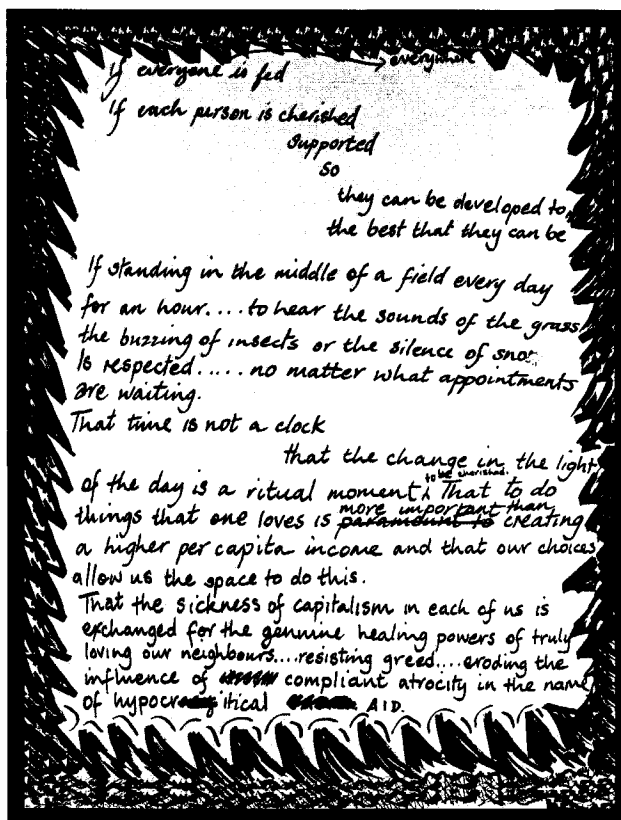 If everyone is fed everywhere
If each person is cherished
Supported
So
they can be developed to,
the best that they can be
If standing in the middle of a field every day
for an hour.... to hear the sounds of the grass
the buzzing of insects or the silence of snow
Is respected..... no matter what appointments
are waiting.
That time is not a clock
that the change in the light
of the day is a ritual moment to be cherished. That to do
things that one loves is paramount to more important than creating
a higher per capita income and that our choices
allow us the space to do this.
That the sickness of capitalism in each of us is
exchanged for the genuine healing powers of truly
loving our neighbours....resisting greed....eroding the
influence of compliant atrocity in the name
of hypocritical AID.